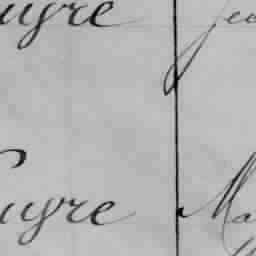 uyre Jea
uyre Ma